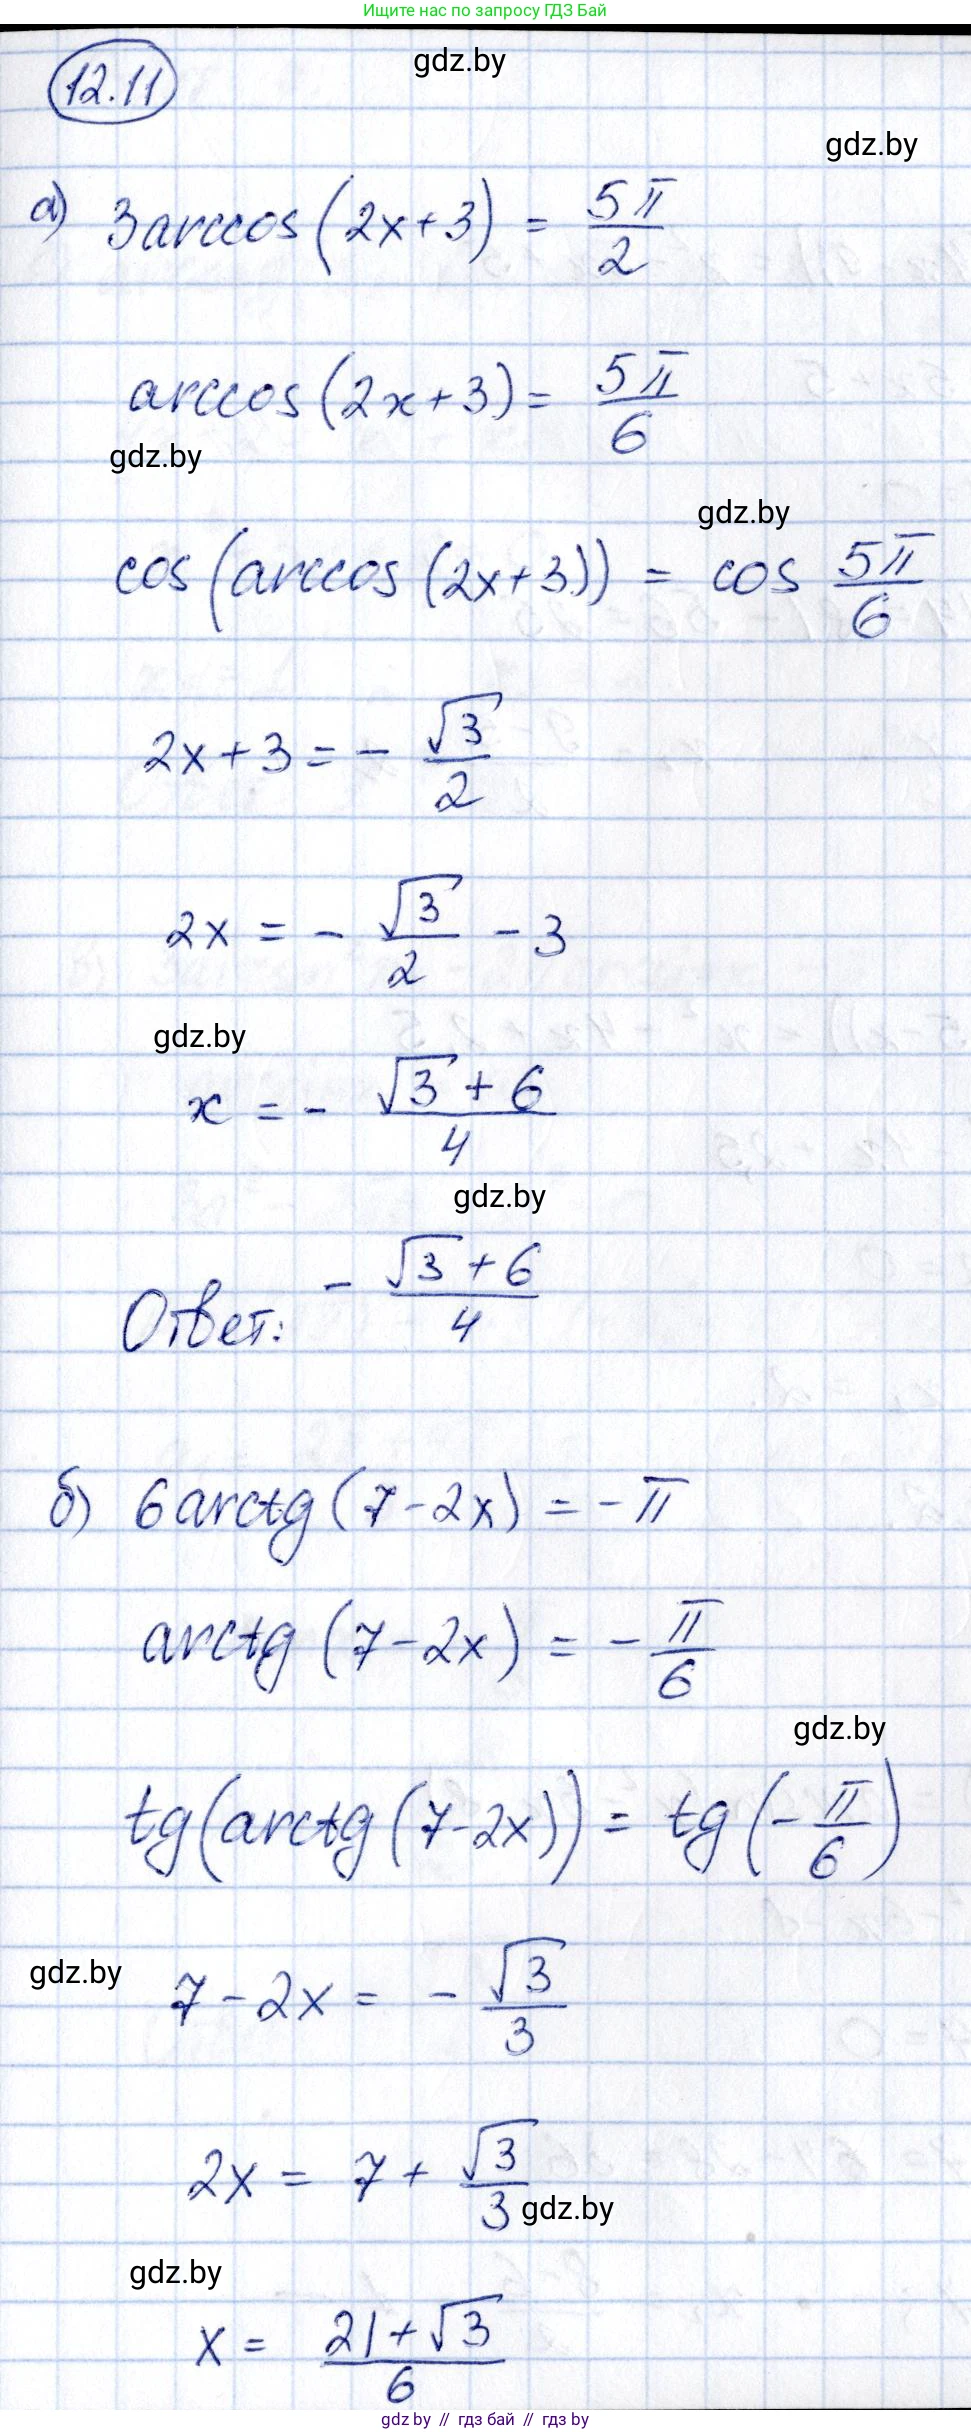 Ищите нас по запросу ГДЗ Бай
12.11
gdz.by
gdz.by
а) 3arccos(2x+3) = 5π/2
arccos(2x+3) = 5π/6
gdz.by
gdz.by
cos(arccos(2x+3)) = cos 5π/6
2x+3 = - √3/2
2x = - √3/2 - 3
gdz.by
x = - (√3+6)/4
gdz.by
Ответ: - (√3+6)/4
б) 6arctg(7-2x) = -π
arctg(7-2x) = - π/6
gdz.by
tg(arctg(7-2x)) = tg(-π/6)
gdz.by
7-2x = - √3/3
2x = 7 + √3/3
gdz.by
gdz.by
x = (21+√3)/6
gdz.by // гдз бай // гдз by